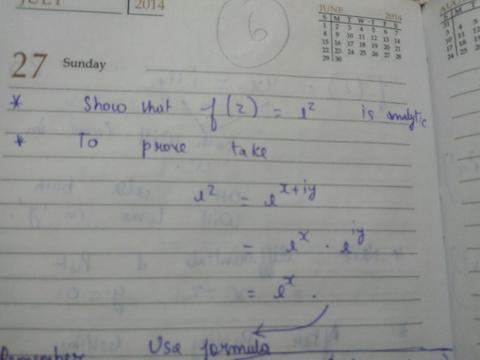 JULY 2014
6
JUNE 2014
S M T W T F S
1 2 3 4 5 6 7
8 9 10 11 12 13 14
15 16 17 18 19 20 21
22 23 24 25 26 27 28
29 30
27 Sunday
* Show that f(z) = e^z is analytic
* To prove take
e^z = e^{x+iy}
= e^x . e^{iy}
= e^x .
Remember Use formula